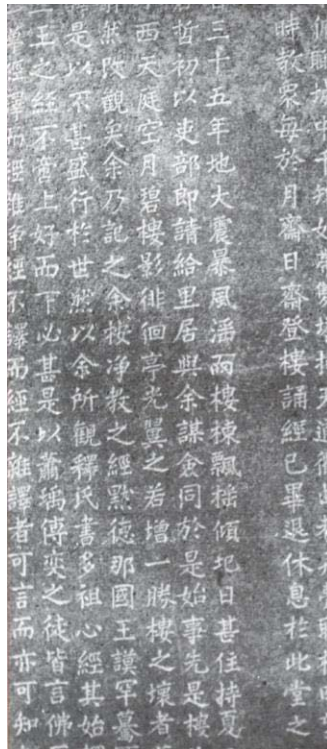 時教衆每於月齋日齋登樓誦經已畢退休息於此堂之
三十五年地大震暴風滛雨樓棟飄摇傾圮日甚住持夏
哲初以吏部郎請給里居與余謀僉同於是始事先是樓
西天庭空月碧樓影徘徊亭光翼之若增一勝樓之壞者
然改觀矣余乃記之余按净教之經默德那國王謨罕驀
是以不甚盛行於世然以余所觀釋氏書多祖心經其始
二王之經不啻上好而下必甚是以蕭瑀傳奕之徒皆言佛
經譯而經雜經不譯而經不雜譯者可言而亦可知